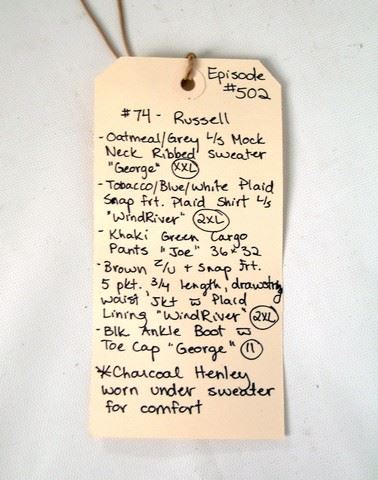 Episode
#502
#74 - Russell
- Oatmeal/Grey L/s Mock
Neck Ribbed sweater
"George" XXL
- Tobacco/Blue/White Plaid
Snap frt. Plaid Shirt L/s
"WindRiver" 2XL
- Khaki Green Cargo
Pants "Joe" 36x32
- Brown z/u + Snap frt.
5 pkt. 3/4 length, drawstring
waist jkt w Plaid
Lining "WindRiver" 2XL
- Blk Ankle Boot w
Toe Cap "George" 11
*Charcoal Henley
worn under sweater
for comfort